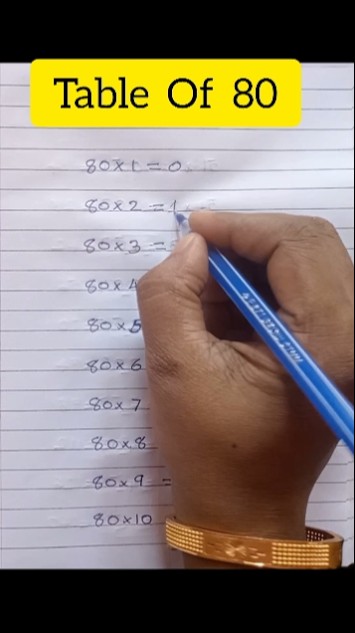 Table Of 80
80×1 = 0
80×2 = 1
80×3 =
80×4
80×5
80×6
80×7
80×8
80×9 =
80×10